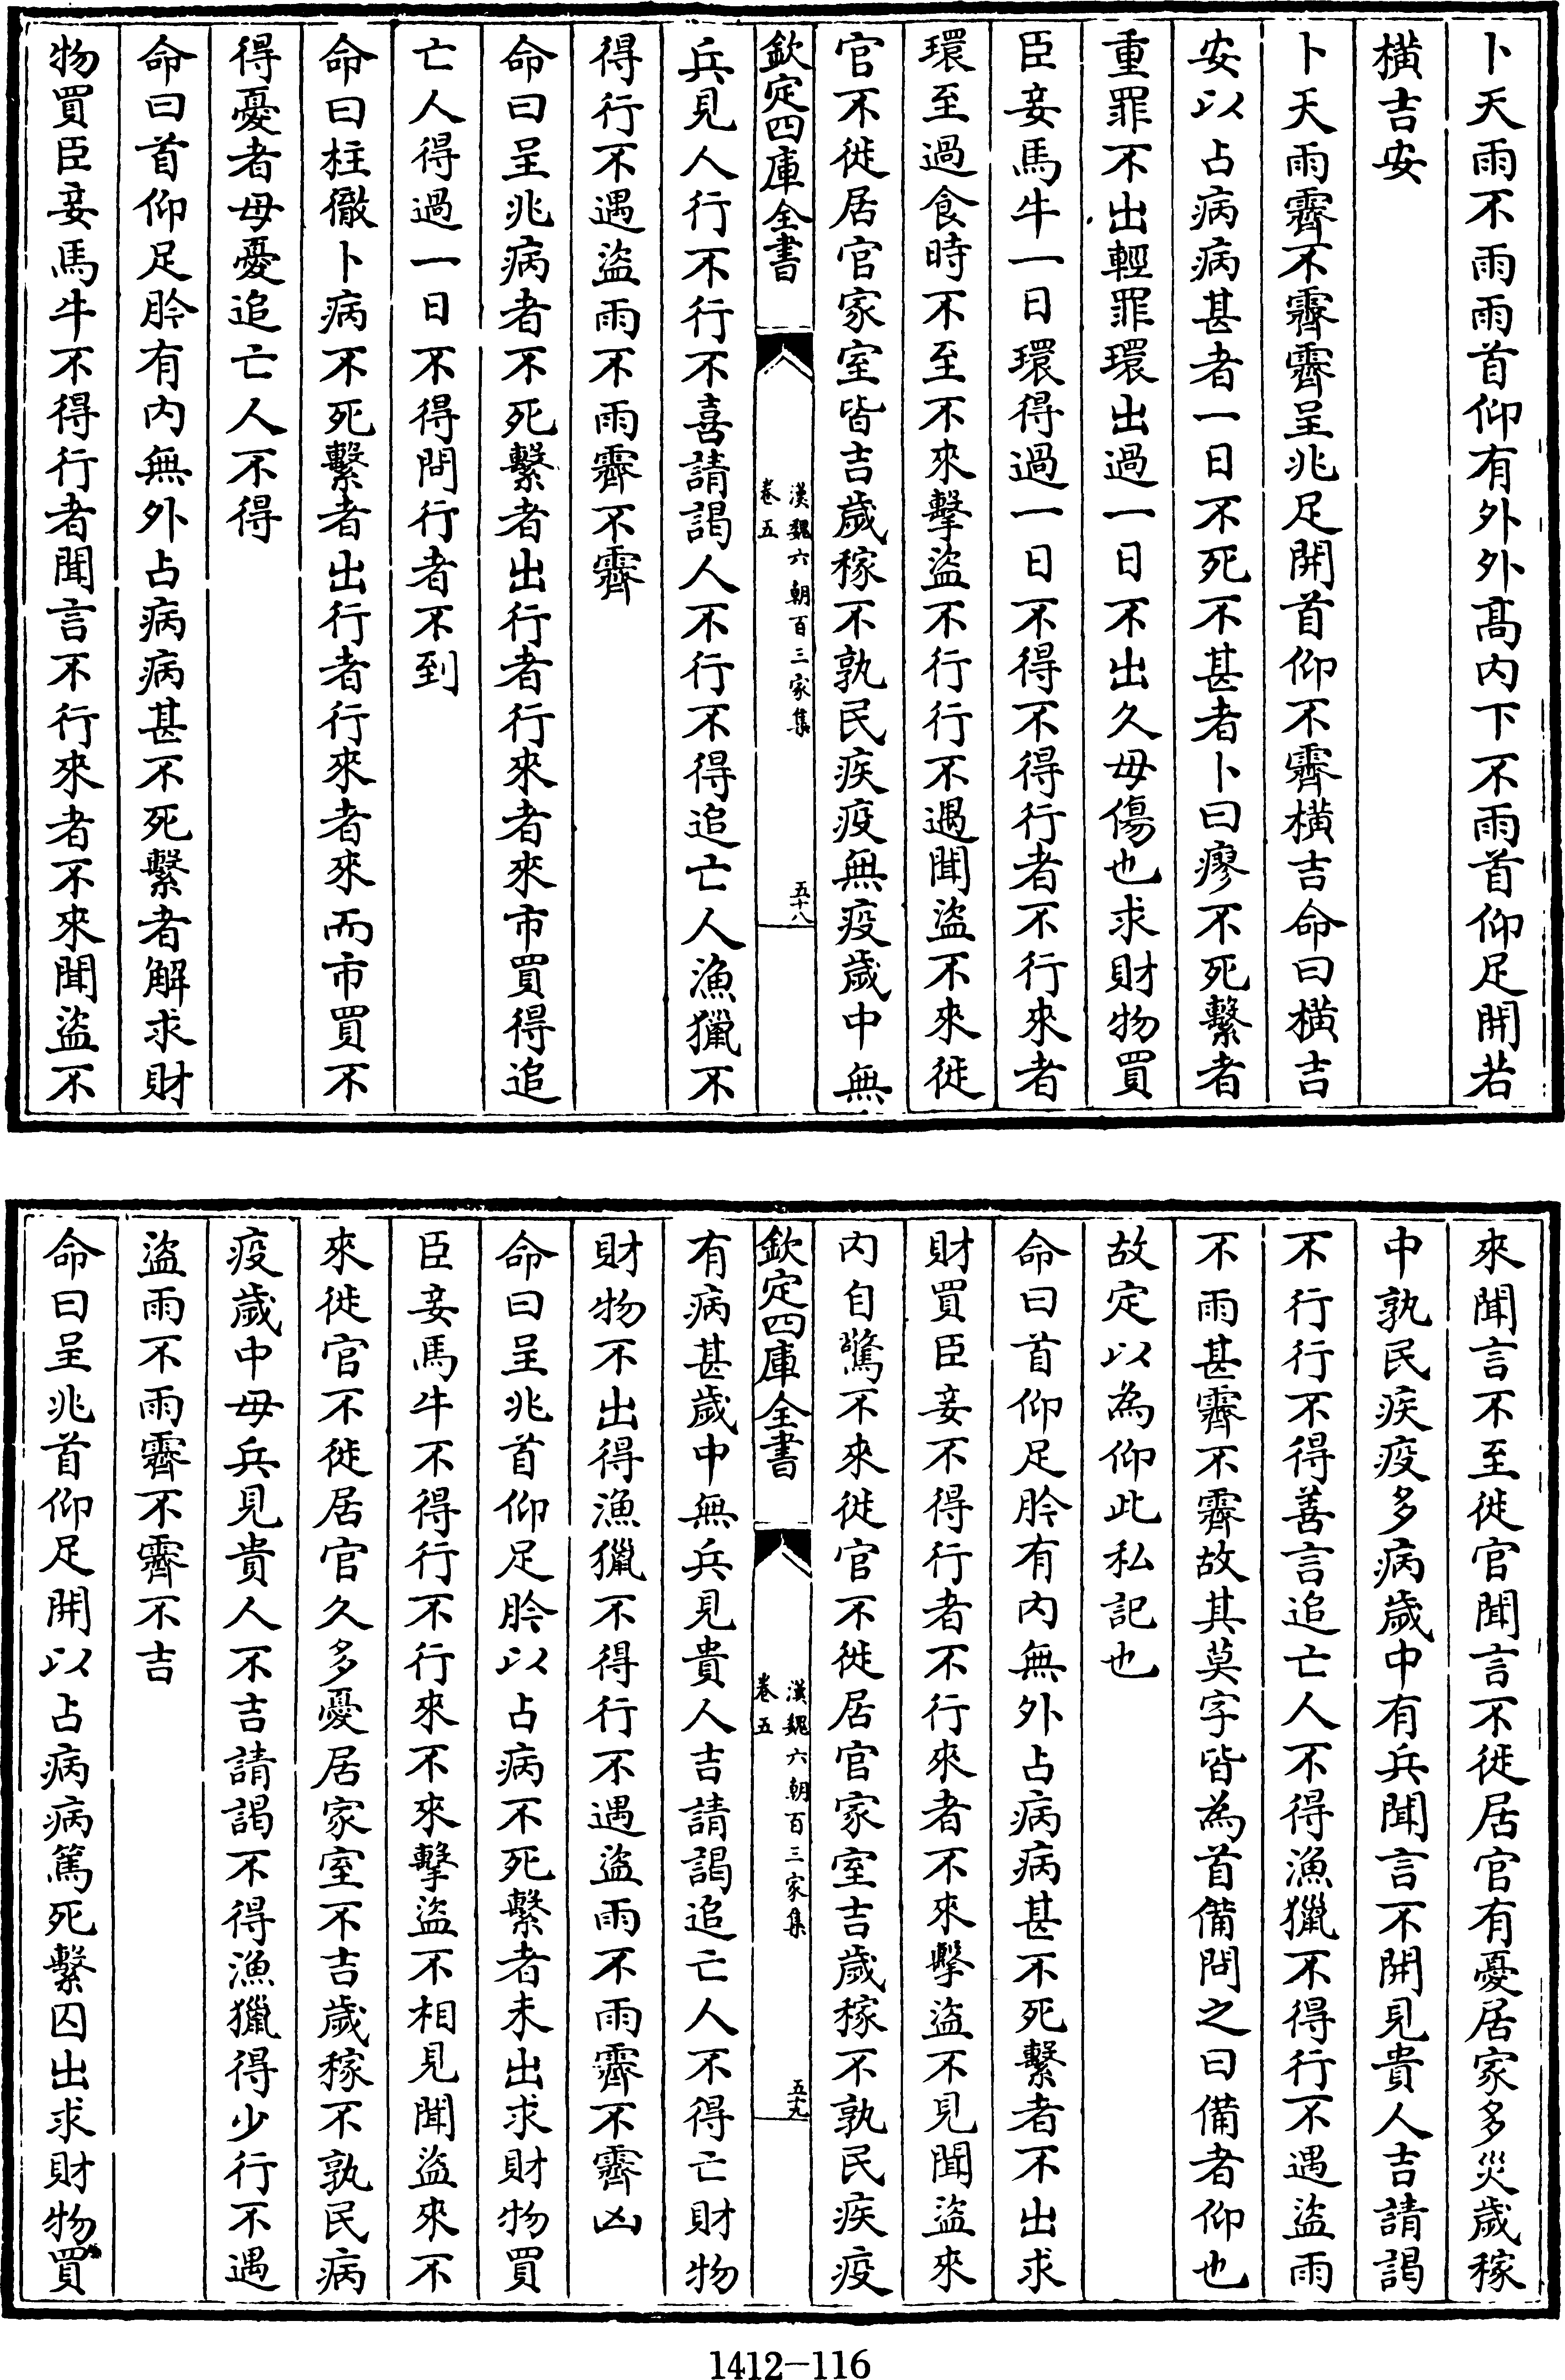 卜天雨不雨雨首仰有外外髙内下不雨首仰足開若
橫吉安
卜天雨霽不霽霽呈兆足開首仰不霽橫吉命曰橫吉
安以占病病甚者一日不死不甚者卜曰瘳不死繫者
重罪不出輕罪環出過一日不出久毋傷也求財物買
臣妾馬牛一日環得過一日不得不得行者不行來者
環至過食時不至不來擊盜不行行不遇聞盜不來徙
官不徙居官家室皆吉歲稼不孰民疾疫無疫歲中無
欽定四庫全書
漢魏六朝百三家集
卷五
五十八
兵見人行不行不喜請謁人不行不得追亡人漁獵不
得行不遇盜雨不雨霽不霽
命曰呈兆病者不死繫者出行者行來者來市買得追
亡人得過一日不得問行者不到
命曰柱徹卜病不死繫者出行者行來者來而市買不
得憂者毋憂追亡人不得
命曰首仰足肣有内無外占病病甚不死繫者解求財
物買臣妾馬牛不得行者聞言不行來者不來聞盜不
來聞言不至徙官聞言不徙居官有憂居家多災歲稼
中孰民疾疫多病歲中有兵聞言不開見貴人吉請謁
不行行不得善言追亡人不得漁獵不得行不遇盜雨
不雨甚霽不霽故其莫字皆為首備問之曰備者仰也
故定以為仰此私記也
命曰首仰足肣有内無外占病病甚不死繫者不出求
財買臣妾不得行者不行來者不來擊盜不見聞盜來
内自驚不來徙官不徙居官家室吉歲稼不孰民疾疫
欽定四庫全書
漢魏六朝百三家集
卷五
五十九
有病甚歲中無兵見貴人吉請謁追亡人不得亡財物
財物不出得漁獵不得行不遇盜雨不雨霽不霽凶
命曰呈兆首仰足肣以占病不死繫者未出求財物買
臣妾馬牛不得行不行來不來擊盜不相見聞盜來不
來徙官不徙居官久多憂居家室不吉歲稼不孰民病
疫歲中毋兵見貴人不吉請謁不得漁獵得少行不遇
盜雨不雨霽不霽不吉
命曰呈兆首仰足開以占病病篤死繫囚出求財物買
1412—116